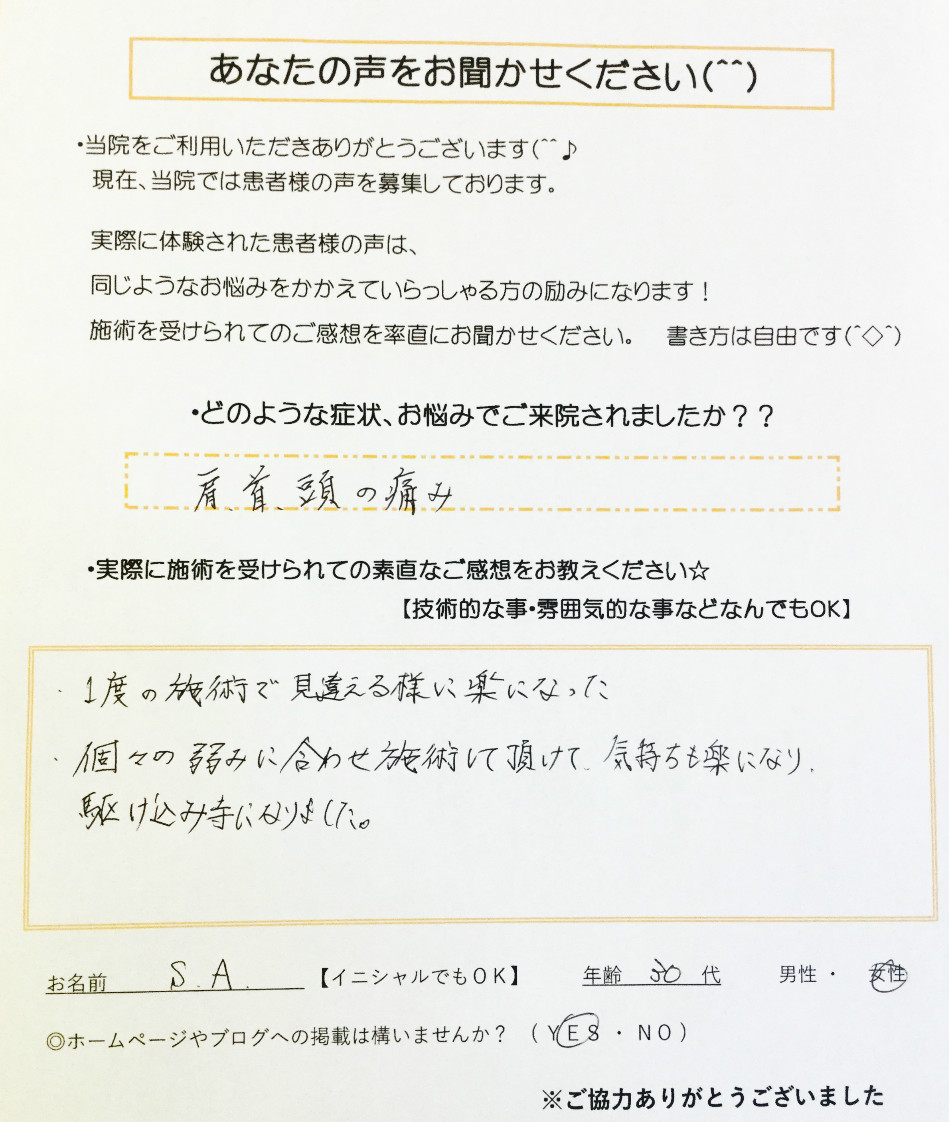 あなたの声をお聞かせください(^^)
・当院をご利用いただきありがとうございます(^^♪
現在、当院では患者様の声を募集しております。
実際に体験された患者様の声は、
同じようなお悩みをかかえていらっしゃる方の励みになります！
施術を受けられてのご感想を率直にお聞かせください。　書き方は自由です(^◇^)
・どのような症状、お悩みでご来院されましたか？？
肩、首、頭の痛み
・実際に施術を受けられての素直なご感想をお教えください☆
【技術的な事・雰囲気的な事などなんでもOK】
・1度の施術で見違える様に楽になった
・個々の弱みに合わせ施術して頂けて、気持ちも楽になり、
駆け込み寺になりました。
お名前　S.A.　【イニシャルでもOK】　年齢　50　代　男性・女性
◎ホームページやブログへの掲載は構いませんか？（YES・NO）
※ご協力ありがとうございました